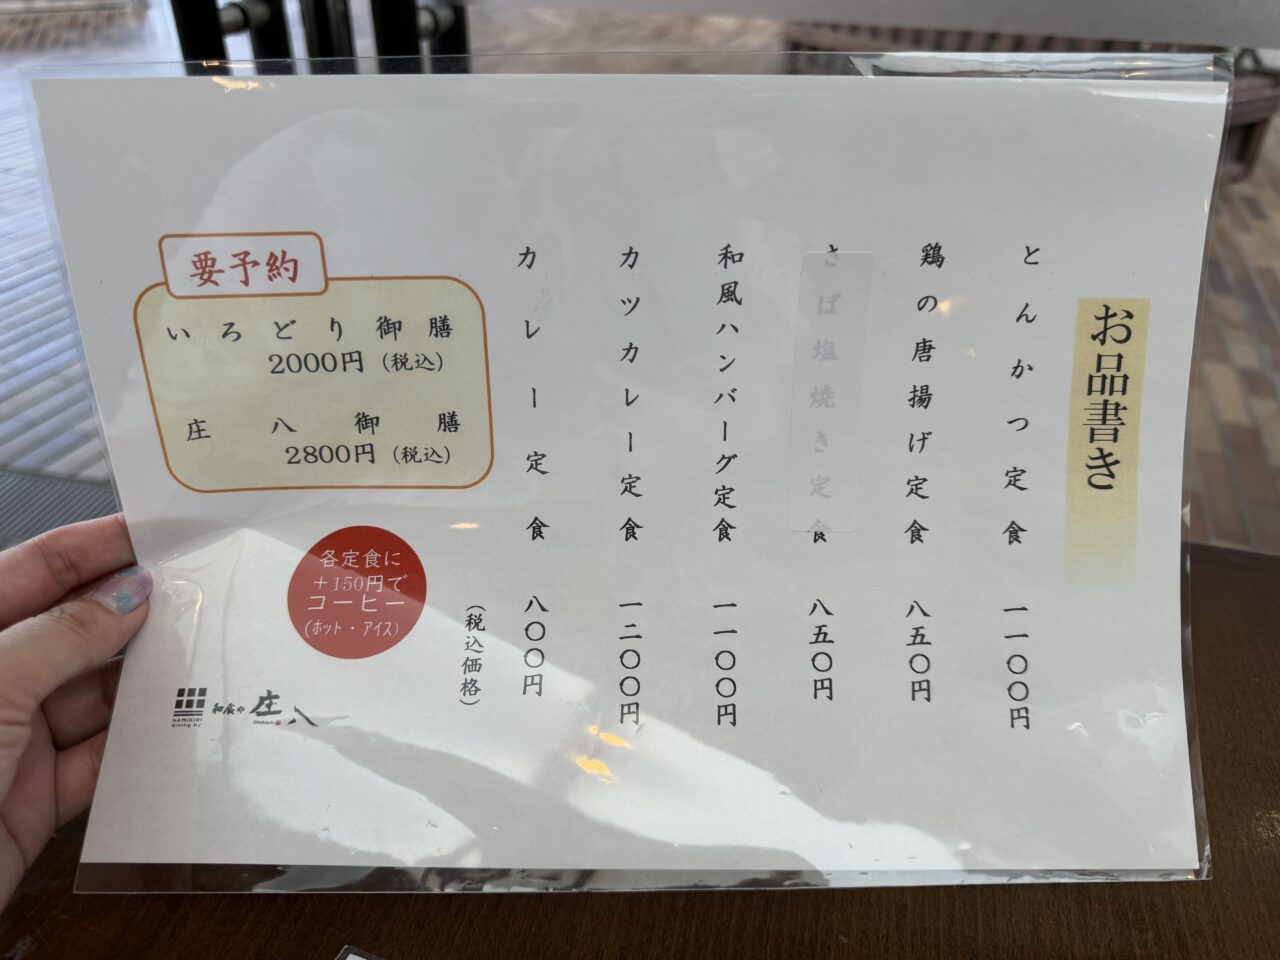 お品書き
とんかつ定食 一一〇〇円
鶏の唐揚げ定食 八五〇円
さば塩焼き定食 八五〇円
和風ハンバーグ定食 一一〇〇円
カツカレー定食 一二〇〇円
カレー定食 八〇〇円
(税込価格)
要予約
いろどり御膳
2000円 (税込)
庄八御膳
2800円 (税込)
各定食に
+150円で
コーヒー
(ホット・アイス)
NAMIKIRI
dining by
和食や 庄八
Shohachi